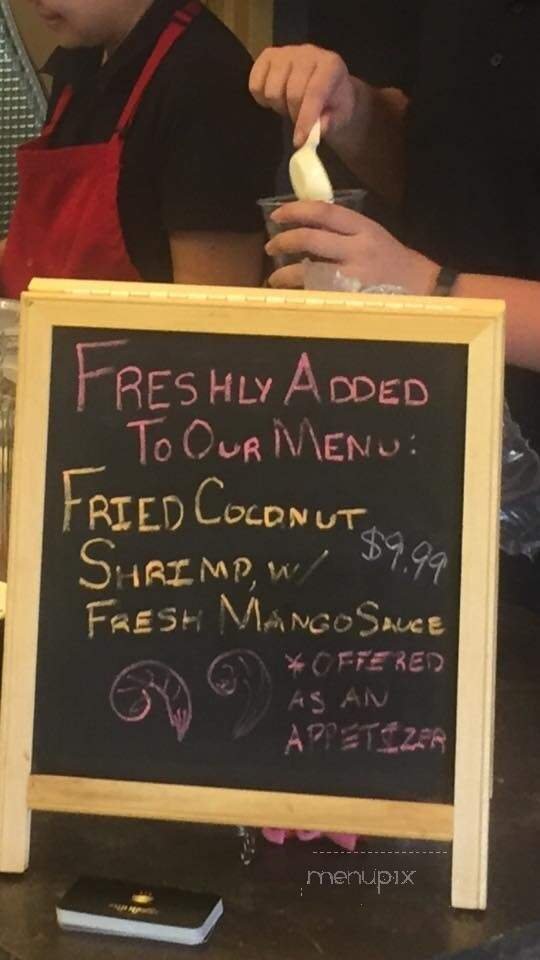 FRESHLY ADDED
TO OUR MENU:
FRIED COCONUT
SHRIMP, W/ $9.99
FRESH MANGO SAUCE
*OFFERED
AS AN
APPETIZER
menupix